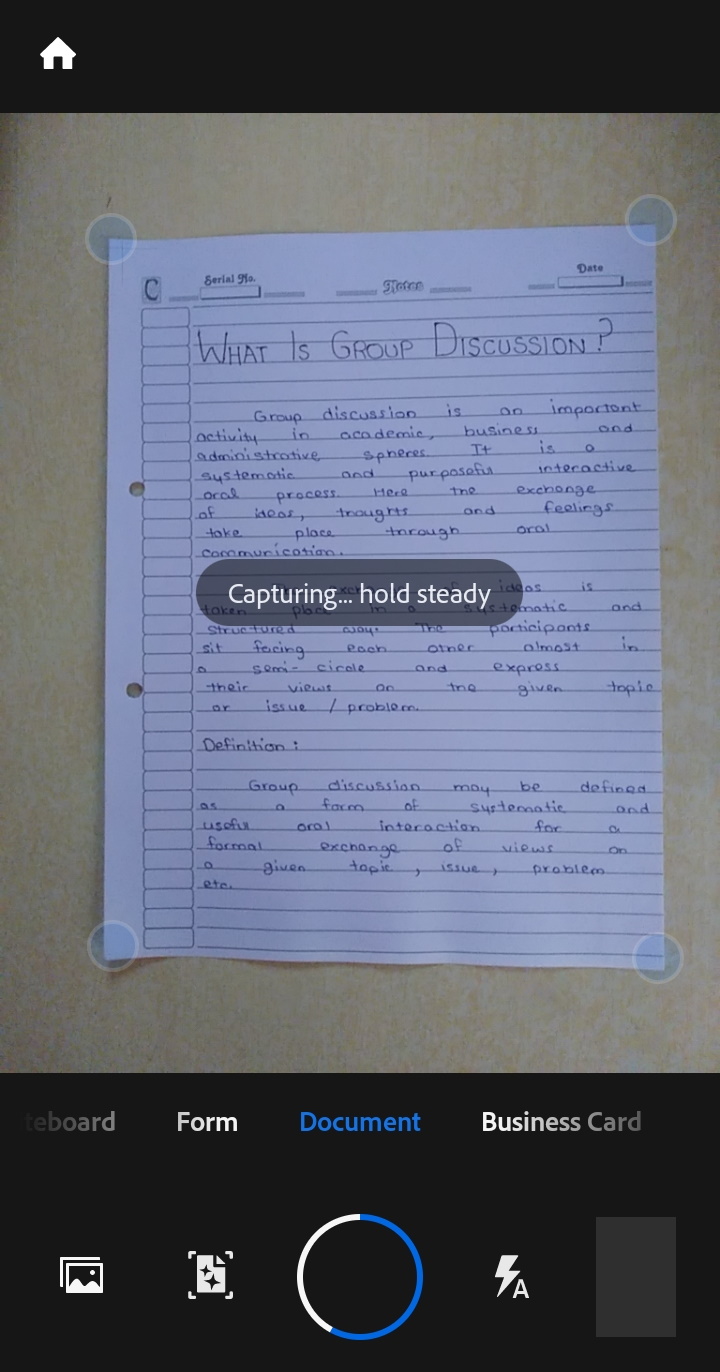 C
Serial No.
Notes
Date
WHAT IS GROUP DISCUSSION?
Group discussion is an important
activity in academic, business and
administrative spheres. It is a
systematic and purposeful interactive
oral process. Here the exchange
of ideas, thoughts and feelings
take place through oral
communication.
of ideas is
Capturing... hold steady
taken place in a systematic and
structured way. The participants
sit facing each other almost in
a semi-circle and express
their views on the given topic
or issue / problem.
Definition :
Group discussion may be defined
as a form of systematic and
useful oral interaction for a
formal exchange of views on
a given topic, issue, problem
etc.
teboard
Form
Document
Business Card
A